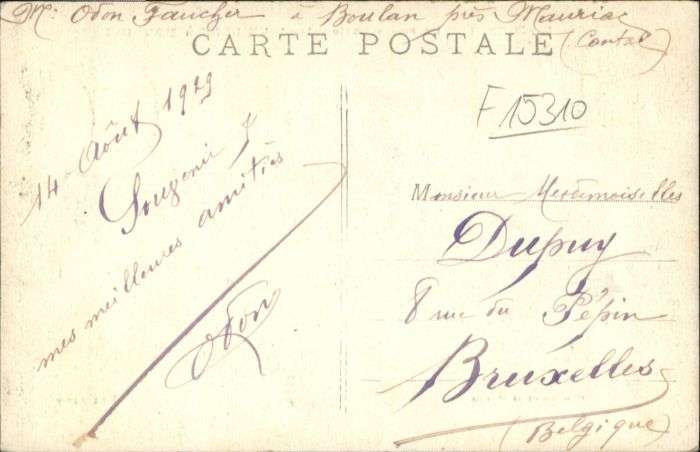 Mr Odon Faucher à Boulan près Mauriac
(Cantal)
CARTE POSTALE
F15310
14 Août 1929
Souvenir &
mes meilleures amitiés
Odon
Monsieur Mesdemoiselles
Dupuy
8 rue du Pépin
Bruxelles
(Belgique)